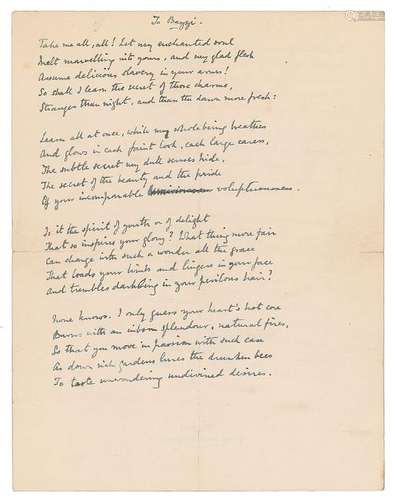 To Bazzi.
Take me all, all! Let my enchanted soul
Melt marvelling into yours, and my glad flesh
Assume delicious slavery in your arms!
So shall I learn the secret of those charms,
Stranger than night, and than the dawn more fresh:
Learn all at once, while my whole being breathes
And glows in each faint look, each large caress,
The subtle secret my dull senses hide,
The secret of the beauty and the pride
Of your incomparable voluptuousness.
Is it the spirit of youth or of delight
That so inspires your glory? What thing more fair
Can change into such a wonder all the grace
That loads your limbs and lingers in your face
And trembles darkling in your perilous hair?
None knows. I only guess your heart's hot core
Burns with an inborn splendour, natural fires,
So that you move in passion with such ease
As down rich gardens lures the drunken bees
To taste unwondering undivined desires.